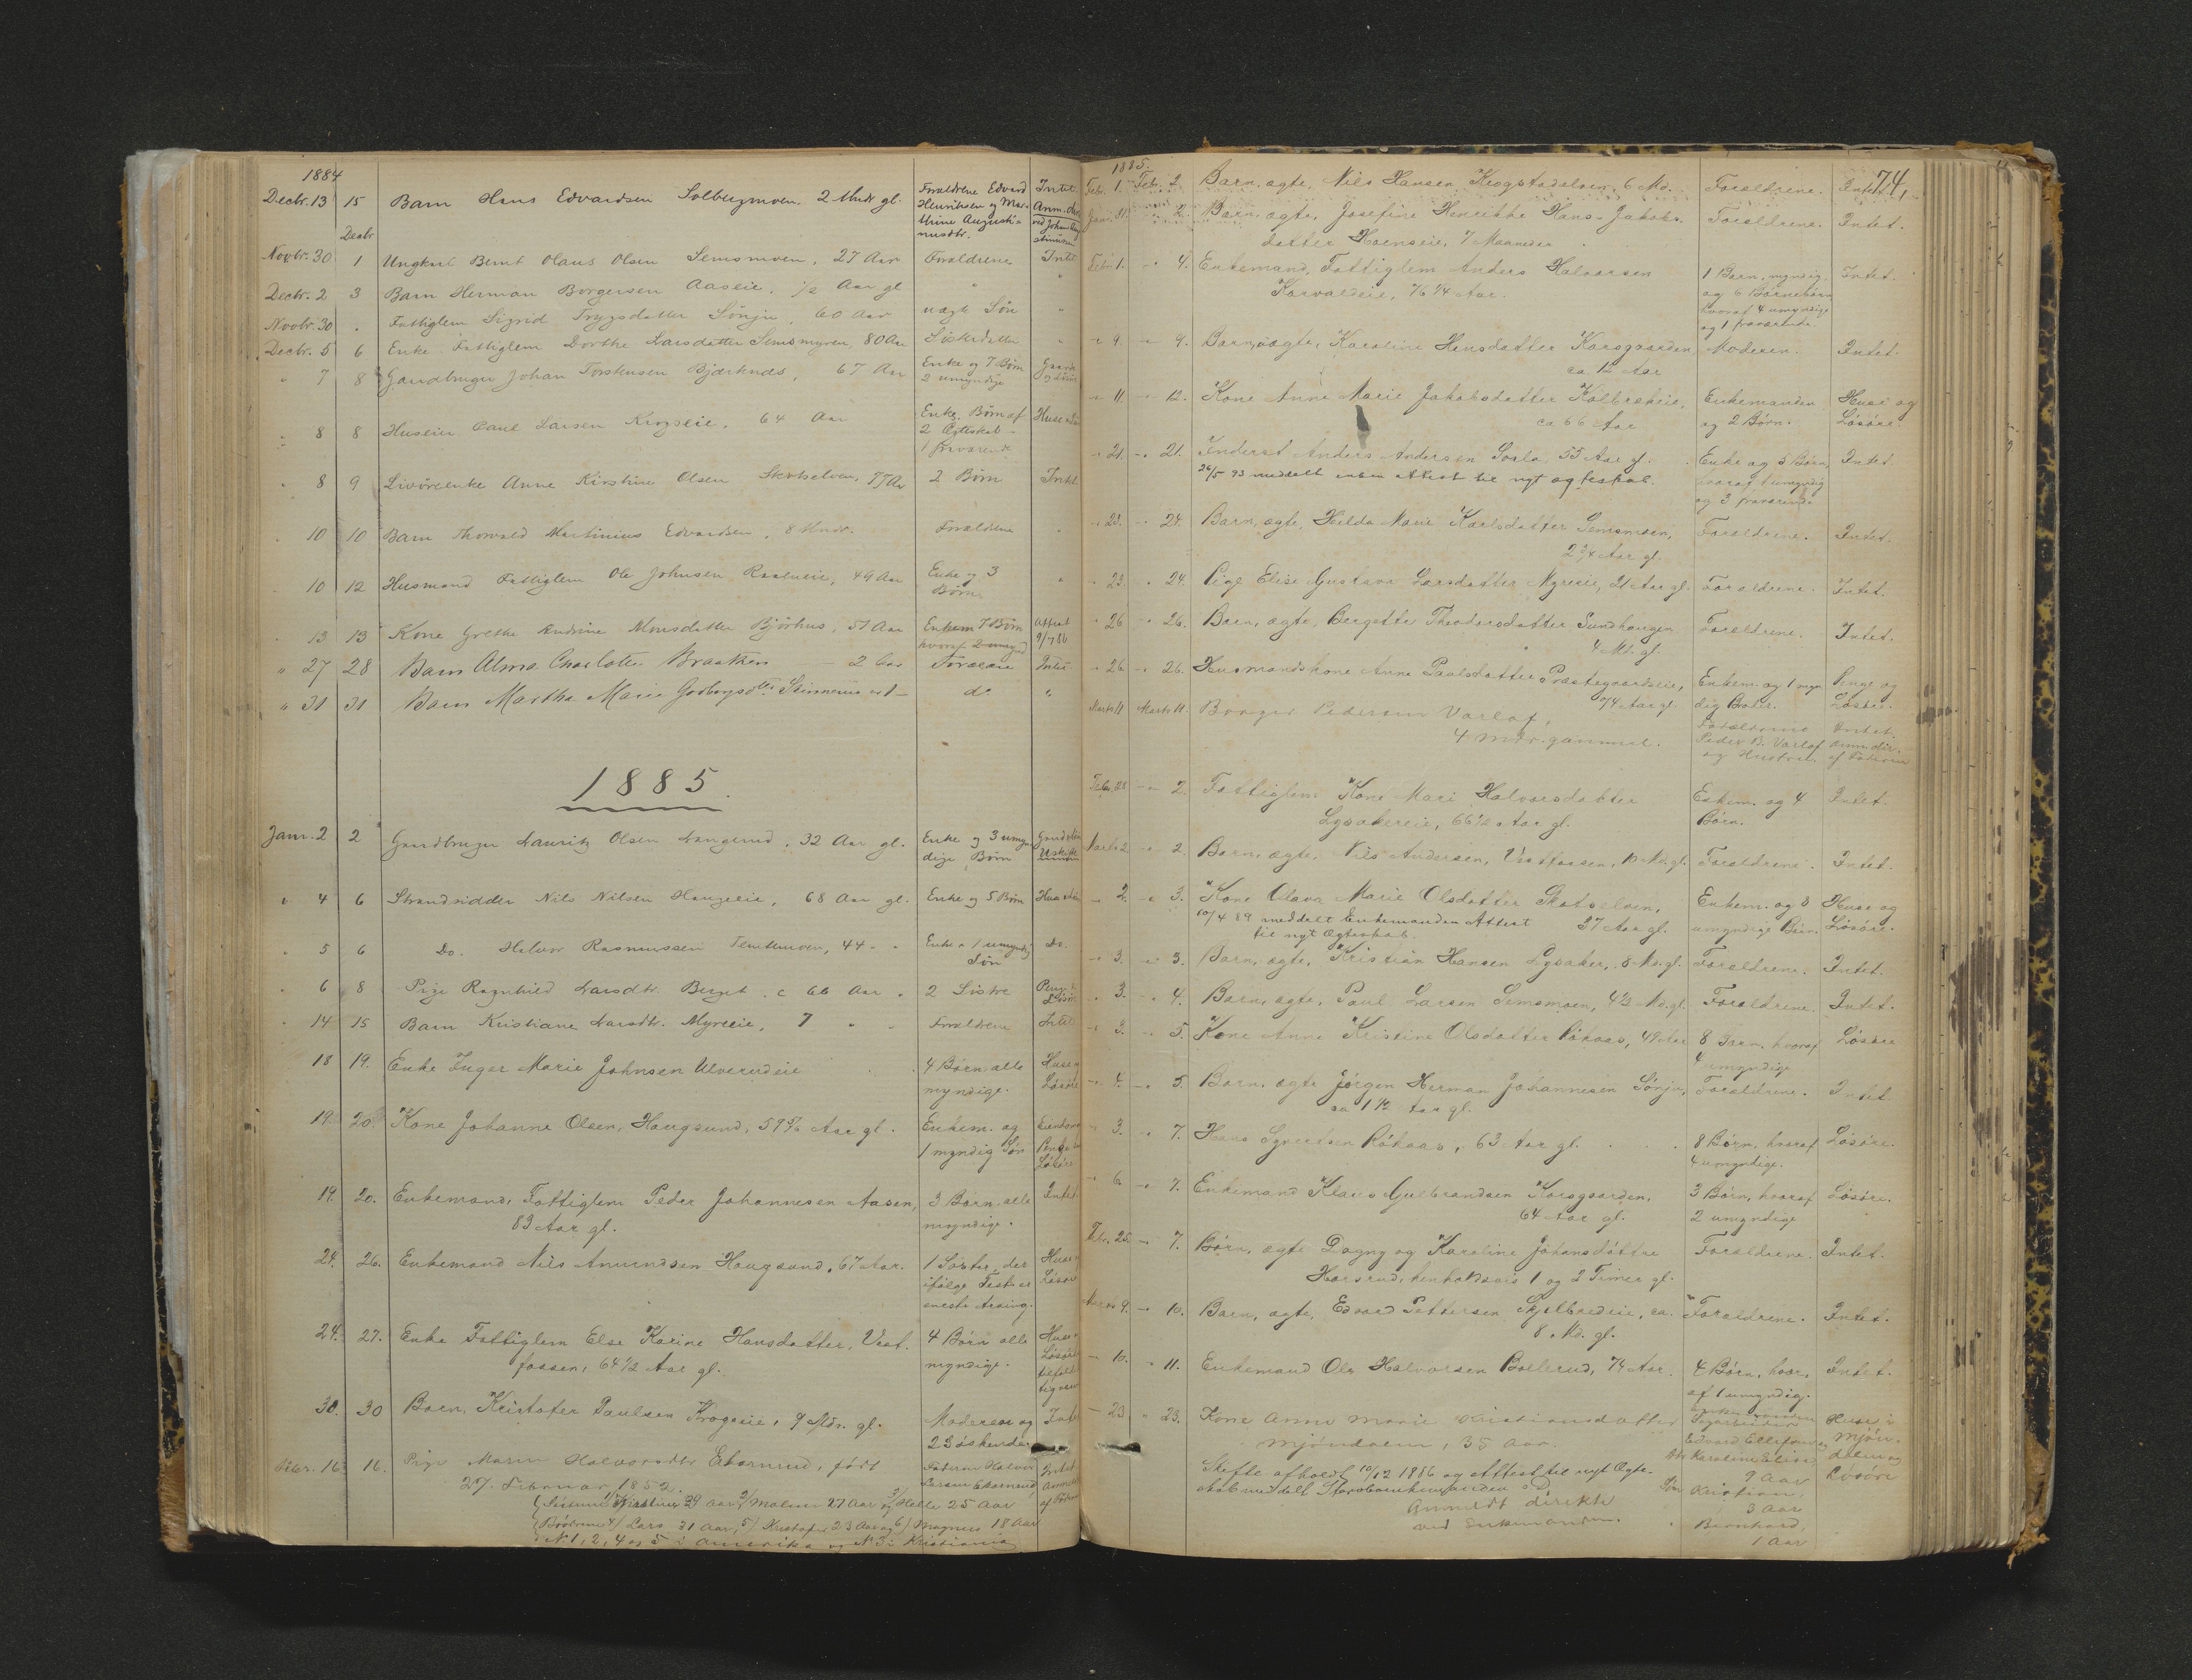 1884
Decbr. 13 15 Barn Hans Edvardsen Solbergmoen 2 Mndr gl. Forældrene Edvard Intet
Henriksen og Mar- Anm. dir.
thine Augusti- ved Johan
nusdtr.
Decbr
Novbr. 30 1 Ungkarl Bernt Olaus Olsen Semsmoen, 27 Aar Forældrene Intet
Decbr. 2 3 Barn Herman Borgersen Aaseie, 1/2 Aar gl " "
Novbr. 30 " Fattiglem Sigrid Trygsdatter Sønju, 60 Aar uægte Søn "
Decbr. 5 6 Enke Fattiglem Dorthe Larsdatter Semsmyren, 80 Aar Søsterdatter "
" 7 8 Gaardbruger Johan Torstensen Bjærknæs, 67 Aar Enke og 7 Børn
2 umyndige
" 8 8 Huseier Paul Larsen Krogseie, 64 Aar Enke, Børn af Huse
2 Ægteskab
1 fraværende
" 8 9 Livøreenke Anne Kirstine Olsen Skotselven, 77 Aar 2 Børn Intet
" 10 10 Barn Thorvald Martinius Edvardsen, 8 Mndr. Forældrene "
10 12 Husmand Fattiglem Ole Johnsen 49 Aar Enke og 3 "
Børn
" 13 13 Kone Grethe Andrine Monsdatter Bjørhus, 51 Aar Enkem 7 Børn Attest
hvoraf 2 umynd 9/7 86
" 27 28 Barn Alma Charlotte Braathen - 2 Aar Intet
" 31 31 Barn Martha Marie do "
1885.
Janr. 2 2 Gaardbruger Lauritz Olsen Langerud, 32 Aar gl. Enke og 3 umyn
dige Børn Uskifte
" 4 6 Strandsidder Nils Nilsen Haugeie, 68 Aar gl. Enke og 5 Børn
" 5 6 Do. Halvor Rasmussen 44 - " Enke - 1 umyndig Do.
Søn
" 6 8 Pige Ragnhild Larsdtr. Berget, c 66 Aar " 2 Søstre
" 14 15 Barn Kristiane Larsdtr. Myreeie, 7 " - Forældrene Intet
18 19. Enke Inger Marie Johnsen Ulverudeie 4 Børn alle Huse og
myndige. Løsøre
19. 20. Kone Johanne Olsen, Hougsund, 59 5/6 Aar gl. Enkem. og Eiendom
1 myndig Søn Penge
Løsøre
19. 20. Enkemand, Fattiglem Peder Johannesen Aasen, 3 Børn, alle Intet
83 Aar gl. myndige.
24. 26. Enkemand Nils Amundsen Hougsund, 67 Aar. 1 Søster, der Huse
ifølge Test. er Løsøre
eneste Arving.
24. 27. Enke Fattiglem Else Karine Hansdatter, Vest- 4 Børn alle Huse
fossen, 64 1/2 Aar gl. myndige. Løsøre
30. 30 Barn, Kristofer Paulsen Krogseie, 9 Mdr. gl. Moderen og Intet
2 Søskende.
Febr. 16 16. Pige Maren Halvorsdtr Ekornrud, født Faderen Halvor Intet
27. Februar 1852. Larsen Ekornrud
29 Aar, 2/ Maline 27 Aar og 3/ Helle 25 Aar
Brødrene 4/ Lars 31 Aar, 5/ Kristofer 23 Aar og 6/ Magnus 18 Aar
N. 1, 2, 4 og 5 i Amerika og N. 3 i Kristiania
1885. 74.
Febr. 1. Feb. 2. Barn, ægte, Nils Hansen Krogstadelven, 6 Md. Forældrene. Intet.
Janr. 31. " 2. Barn, ægte, Josefine Henrikke Hans-Jakobs- Forældrene. Intet.
datter Hoenseie, 7 Maaneder.
Febr. 1. " 4. Enkemand, Fattiglem Anders Halvorsen 1 Barn, myndig. Intet.
Korvaldeie, 76 1/4 Aar. og 6 Børnebørn
hvoraf 4 umyndige
og 1 fraværende.
" 9. " 9. Barn, uægte, Karoline Hansdatter Korsgaarden, Moderen. Intet.
ca. 12 Aar
" 11. " 12. Kone Anne Marie Jakobsdatter Kolbrekeie, Enkemanden Huse og
ca 66 Aar og 2 Børn. Løsøre.
" 21. " 21. Inderst Anders Andersen Sorla, 55 Aar gl. Enke og 5 Børn, Intet.
26/5 93 meddelt enken attest til nyt ægteskab. hvoraf 1 umyndig
og 3 fraværende
" 23. " 24. Barn, ægte, Hilda Marie Karlsdatter Semsmoen, Forældrene. Intet.
2 3/4 Aar gl.
" 23. " 24. Pige Elise Gustava Larsdatter Myreeie, 21 Aar gl. Forældrene. Intet.
" 26 " 26. Barn, ægte, Bergette Theodorsdatter Sundhaugen Forældrene. Intet.
4 Md. gl.
" 26 " 26. Husmandskone Anne Paulsdatter Præstegaardseie, Enkem. og 1 myn Penge og
74 Aar gl. dig Datter. Løsøre.
Marts 11 Marts 11. Borger Pedersen Varlof, Forældrene Intet.
4 Mdr. gammel. Peder B. Varlof anm. dir.
og Hustru. af Faderen
Febr. 28 " 2. Fattiglem Kone Mari Halvorsdatter Enkem. og 4 Intet.
Lysakereie, 66 1/2 Aar gl. Børn.
Marts 2 " 2. Barn, ægte, Nils Andersen, Vestfossen, 10 Md. gl. Forældrene. Intet.
" 2. " 3. Kone Olava Marie Olsdatter Skotselven, Enkem. og 3 Huse og
10/4 89 meddelt Enkemanden Attest 37 Aar gl. umyndige Børn. Løsøre.
til nyt Ægteskab.
" 3. " 3. Barn, ægte, Kristian Hansen Lysaker, 8 Md. gl. Forældrene. Intet.
" 3. " 4. Barn, ægte, Paul Larsen Semsmoen, 4 1/2 Md. gl. Forældrene. Intet.
" 3. " 5. Kone Anne Kristine Olsdatter Råkaas, 49 Aar 8 Børn, hvoraf Løsøre
4 umyndige
" 4. " 5. Barn, ægte Jørgen Herman Johannesen Sønju, Forældrene. Intet
ca 1 1/2 Aar gl.
" 3. " 7. Hans Syvertsen Råkaas, 63 Aar gl. 8 Børn, hvoraf Løsøre.
4 umyndige.
" 6 " 7. Enkemand Klaus Gulbrandsen Korsgaarden, 3 Børn, hvoraf Løsøre.
64 Aar gl. 2 umyndige
Febr. 25. " 7. Børn, ægte Dagny og Karoline Johansdøttre Forældrene. Intet.
Horsrud, henholdsvis 1 og 2 Timer gl.
Marts 9. " 10. Barn, ægte, Edvard Pettersen Skjelbredeie, ca. Forældrene. Intet.
8 Md. gl.
" 10. " 11. Enkemand Ole Halvorsen Bollerud, 74 Aar. 4 Børn, hvor- Intet.
af 1 umyndig.
" 23 " 23. Kone Anne Marie Kristiansdatter Huse i
Mjøndalen, 35 Aar Edvard Ellefsen og Mjøn-
Dtr Karoline Elise dalen og
Skifte afholdt 10/12 1886 og Attest til nyt Ægte- 9 Aar Løsøre
skab meddelt Stervboenkemanden s. D. Søn Kristian,
Anmeldt direkte 3 Aar
ved Enkemanden. Bernhard,
1 Aar